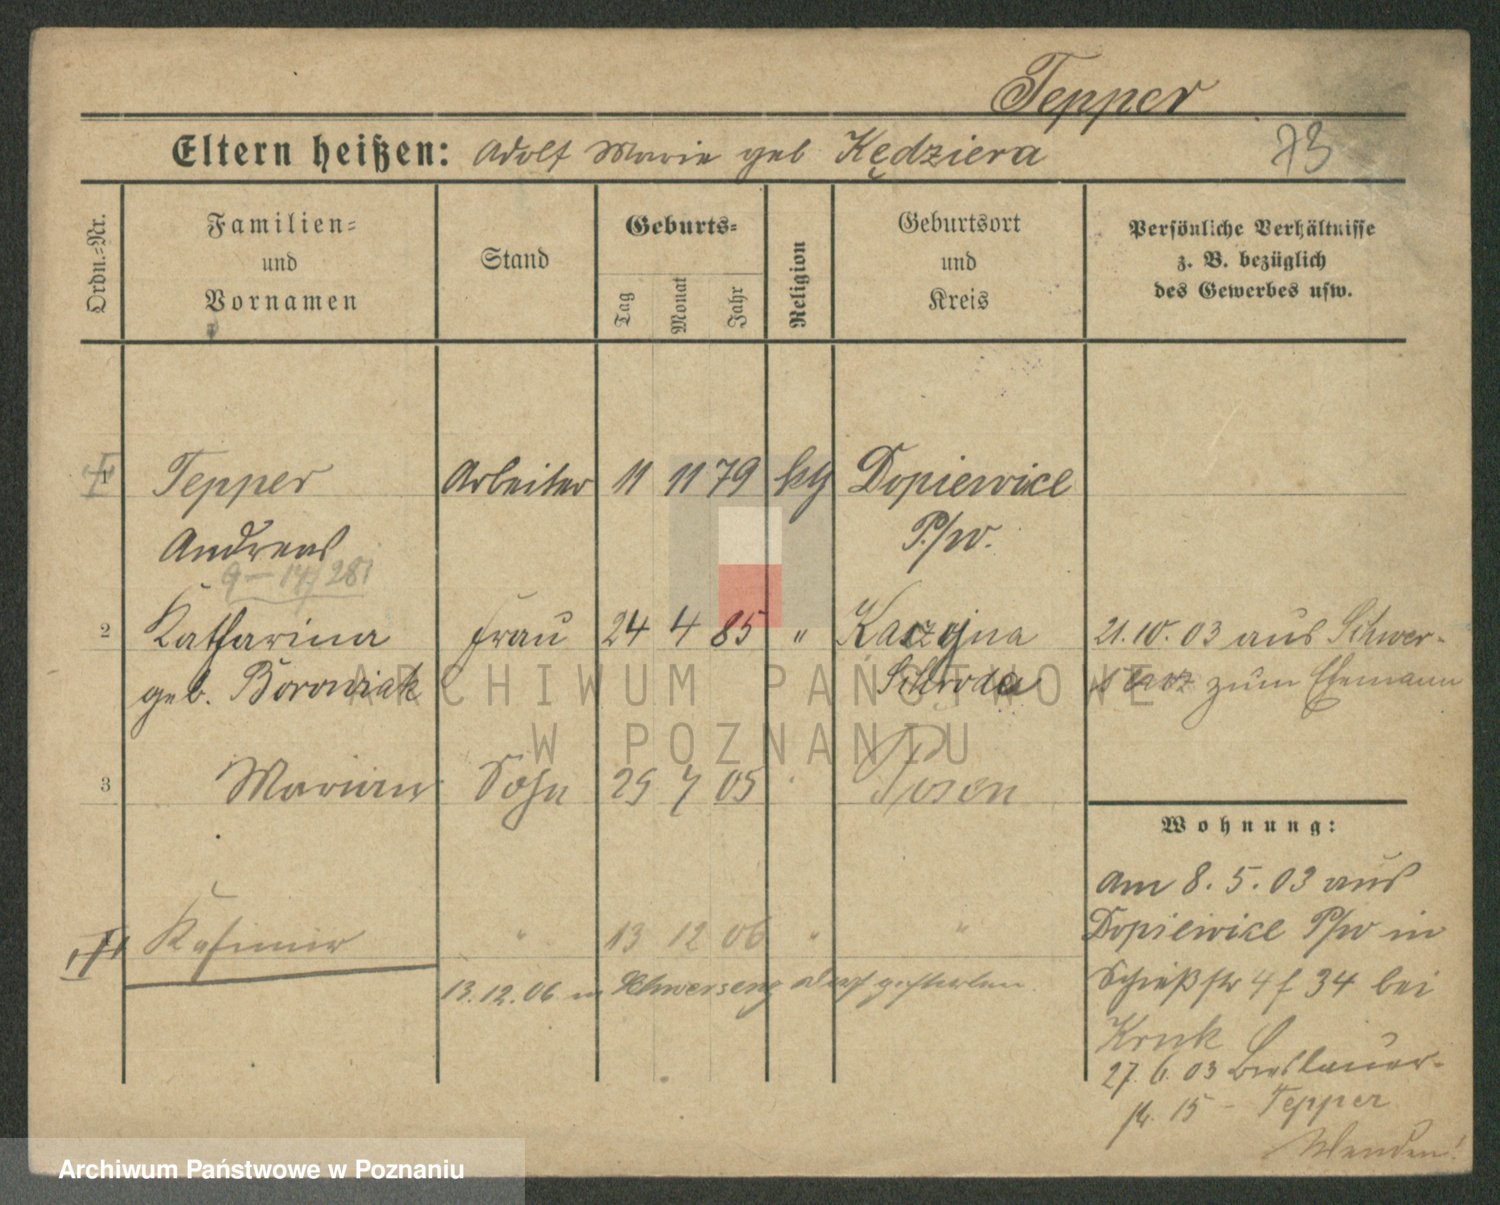 Tepper
Eltern heißen: Adolf Marie geb Kędziera
73
Ordn.-Nr.
Familien-
und
Vornamen
Stand
Geburts-
Tag
Monat
Jahr
Religion
Geburtsort
und
Kreis
Persönliche Verhältnisse
z. B. bezüglich
des Gewerbes usw.
1 Tepper Arbeiter 11 11 79 kth Dopiewice
Andreas P/w.
9 — 14/281
2 Katharina Frau 24 4 85 " Kaczyna 21.10.03 aus Schwer-
geb. Borowiak Schroda senz zum Ehemann
3 Marian Sohn 25 7 05 " Posen
Wohnung:
Am 8.5.03 aus
Kasimir " 13 12 06 " " Dopiewice P/w in
13.12.06 in Schwersenz gestorben
Schießstr 4 f 34 bei
Kruk
27.6.03 Breslauer-
str. 15 – Tepper
Wenden!
ARCHIWUM PAŃSTWOWE
W POZNANIU
Archiwum Państwowe w Poznaniu